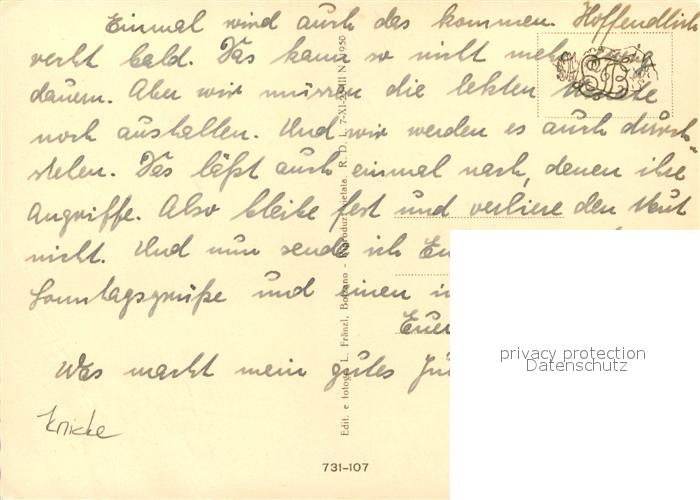 Einmal wird auch das kommen. Hoffendlich
recht bald. Das kann so nicht mehr
dauern. Aber wir müssen die letzten
noch aushalten. Und wir werden es auch durch-
stehen. Das läßt auch einmal nach, denen ihre
Angriffe. Also bleibe fest und verliere den Mut
nicht. Und nun sende ich
Sonntagsgrüße und einen
Euer
Was macht mein gutes
Knicke
Edit. e fotogr. L. Fränzl, Bolzano - Riproduz. vietata. R. D. L. 7-XI-
731-107
privacy protection
Datenschutz